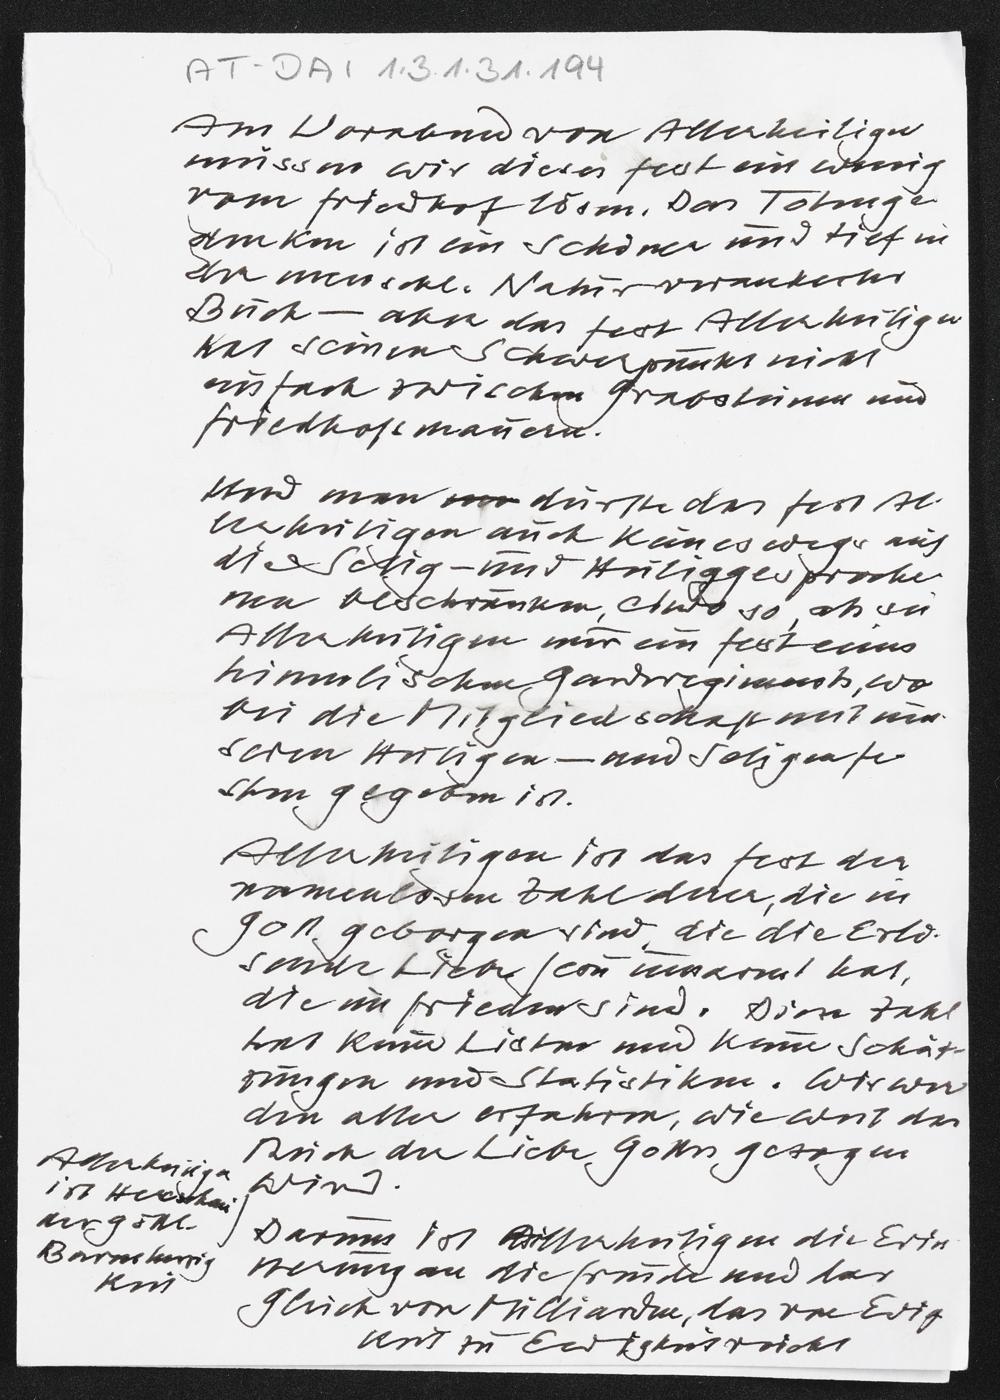 AT-DAI 1.3.1.31.194
Am Vorabend von Allerheiligen
müssen wir dieses Fest ein wenig
vom Friedhof lösen. Das Totenge
denken ist ein schöner und tief in
der menschl. Natur verankerter
Buch — aber das Fest Allerheiligen
hat seinen Schwerpunkt nicht
einfach zwischen Grabsteinen und
Friedhofsmauern.
Und man dürfte das Fest Al-
lerheiligen auch keineswegs auf
die Selig- und Heiliggesproche-
nen beschränken, etwa so, als sei
Allerheiligen nur ein Fest eines
himmlischen Garderegiments, wo
bei die Mitgliedschaft mit un-
seren Heiligen- und Seligenfe-
sten gegeben ist.
Allerheiligen ist das Fest der
namenlosen Zahl derer, die in
Gott geborgen sind, die die Erlö-
sende Liebe umarmt hat,
die im Frieden sind. Diese Zahl
hat keine Listen und keine Schät-
zungen und Statistiken. Wir wer
den alle erfahren, wie weit das
Reich der Liebe Gottes gezogen
wird.
Allerheiligen
ist
der göttl.
Barmherzig
keit
Darum ist Allerheiligen die Erin
nerung an die Freude und das
Glück von Milliarden, das von Ewig
keit zu Ewigkeit reicht